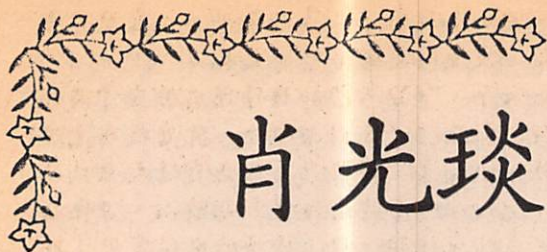 肖光琰